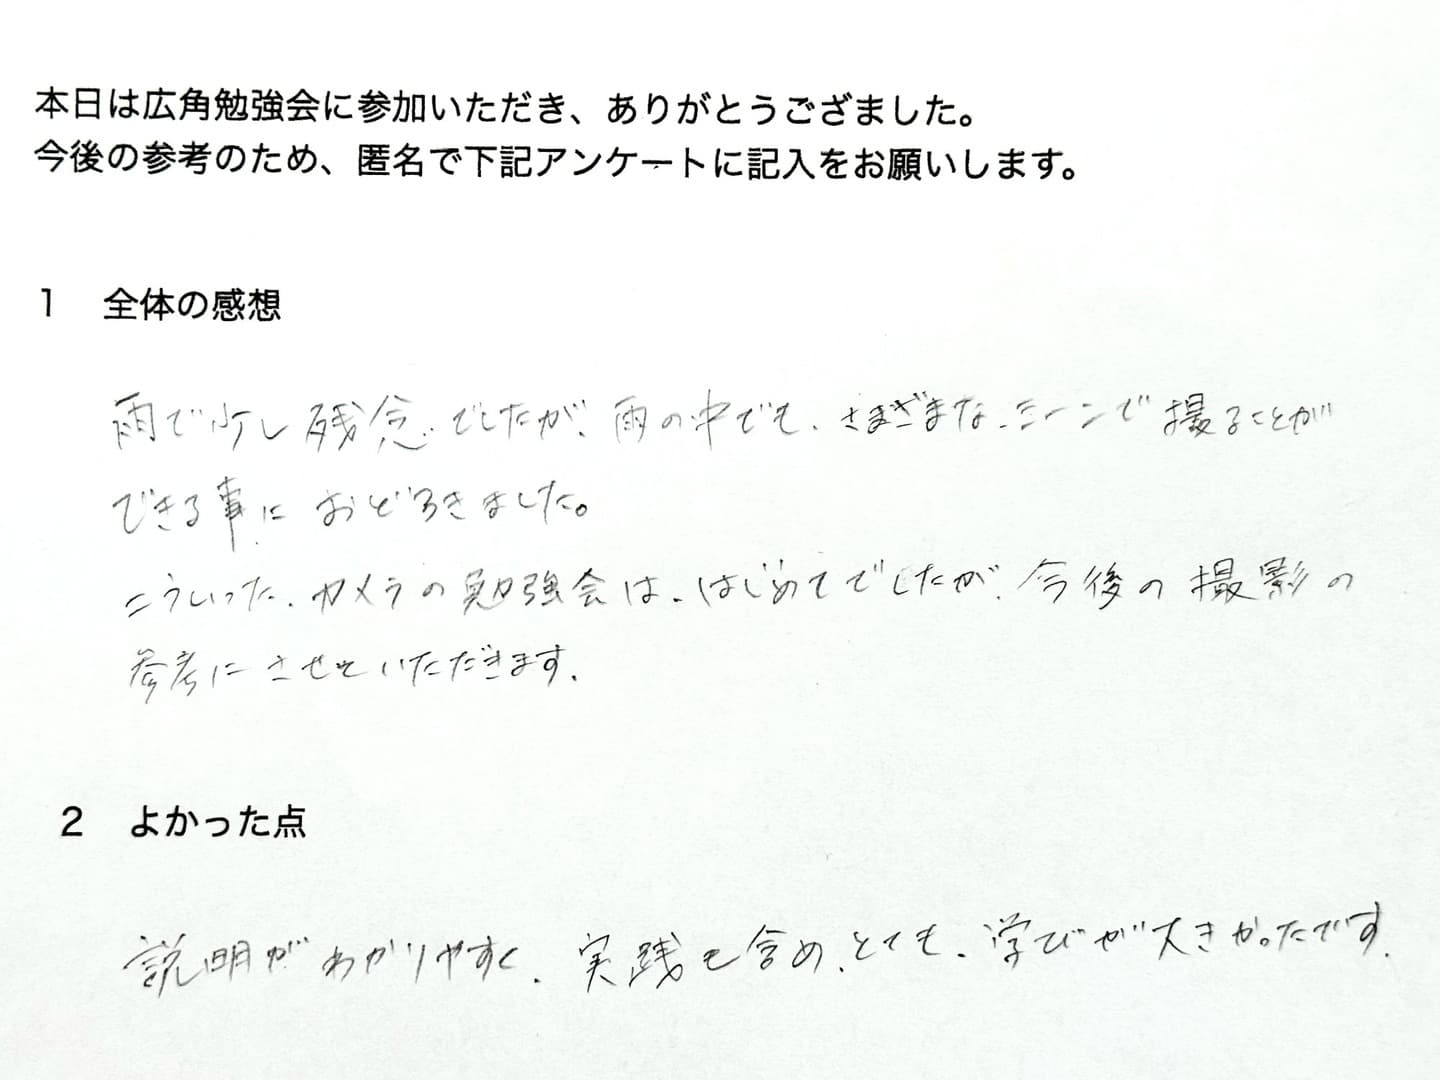 本日は広角勉強会に参加いただき、ありがとうござました。
今後の参考のため、匿名で下記アンケートに記入をお願いします。
1 全体の感想
雨で少し残念でしたが、雨の中でも、さまざまな、シーンで撮ることが
できる事におどろきました。
こういった、カメラの勉強会は、はじめてでしたが、今後の撮影の
参考にさせていただきます。
2 よかった点
説明がわかりやすく、実践も含め、とても、学びが大きかったです。